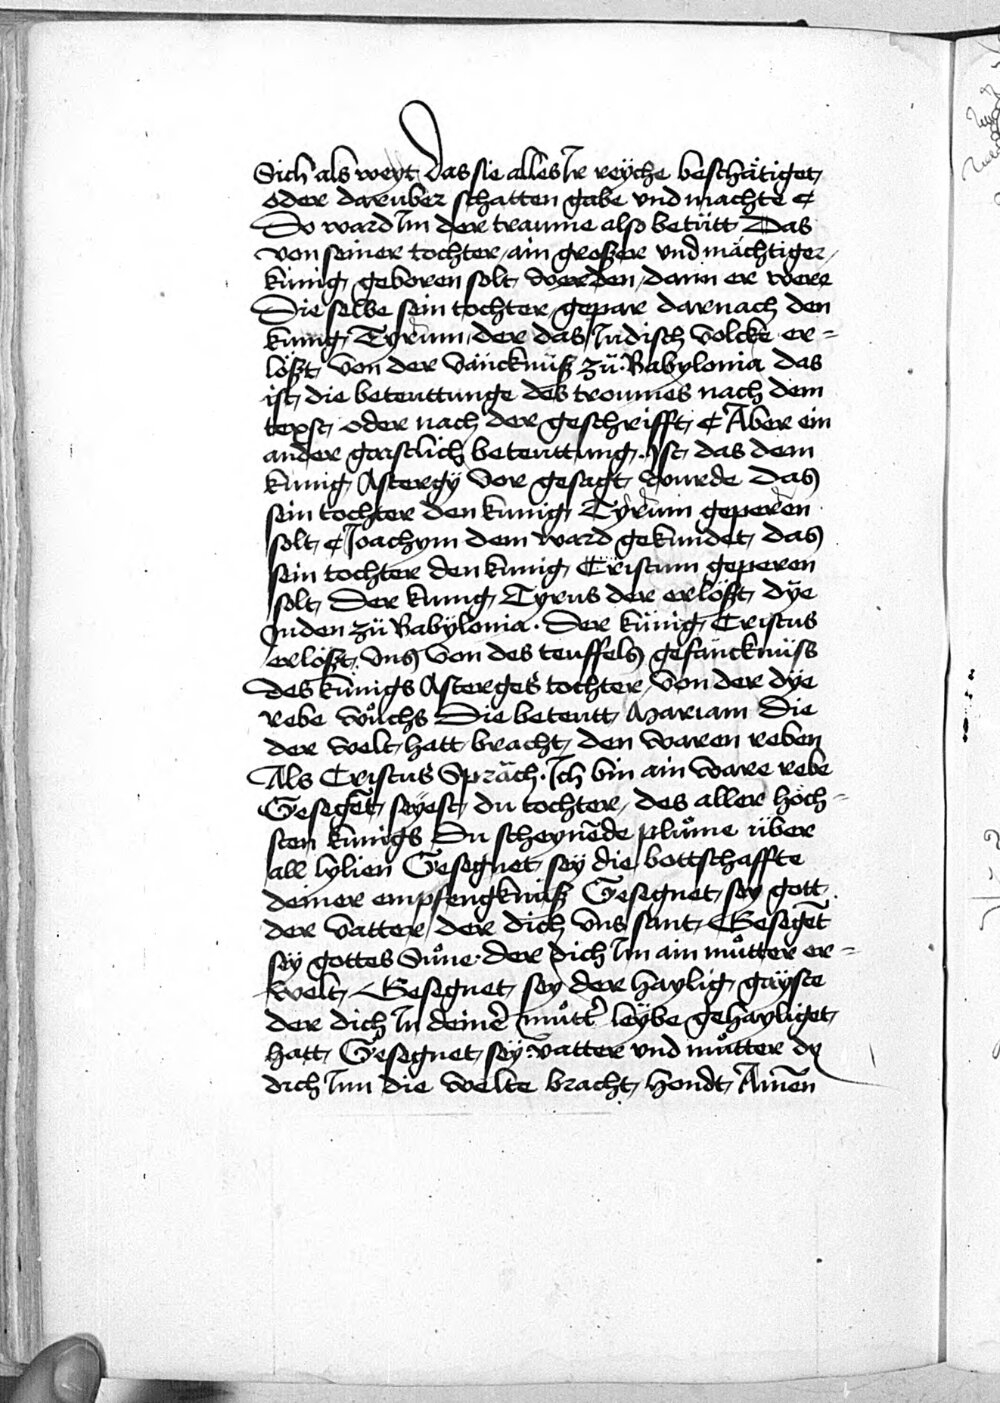 Sich als weyt das sie alles Ir reÿche beschätiget
oder daruber schatten gabe vnd machte ¢
Do ward Im der traume also betütt Das
von seiner tochter ain großer vnd mächtiger
künig geboren solt werden dann er were
Die selbe sein tochter gepar darnach den
kunig Tyrum der das Iudisch volcke er=
lößt von der vänckniß zü Babylonia das
ist die betenttunge des troumes nach dem
text oder nach der geschrifft ¢ Aber ein
ander gaistlich betenttung. Ist das dem
kunig Astergÿ vor gesagt wurde das
sein tochter den kunig Tyrum geperen
solt ¢ Joachym dem ward gekundet das
sein tochter den kunig Cristum geperen
solt Der kunig Tyrus der erlößt dÿe
Juden zü Babÿlonia. Der künig Cristus
erlößt vns von des teuffels gefänckniss
des künigs Asterges tochter von der dÿe
rebe wůchs Die betentt Mariam die
der welt hatt bracht den waren reben
Als Cristus Spräch. Ich bin ain ware rebe
Gesegēt seÿest du tochter des aller höch=
sten kunigs Du scheynēde plůme über
all lylien Gesegnet seÿ die bottschaffte
deiner empfengkniß Gesegnet sey gott
der vatter der dich vns sant Gesegēt
seÿ gottes Sůne. der dich Im ain můtter er=
welt Gesegnet sey der haylig gäyste
der dich In deinē můtt' leÿbe gehayliget
hatt Gesegnet seÿ vatter vnd můtter dy
dich Inn die welte bracht hondt Amen